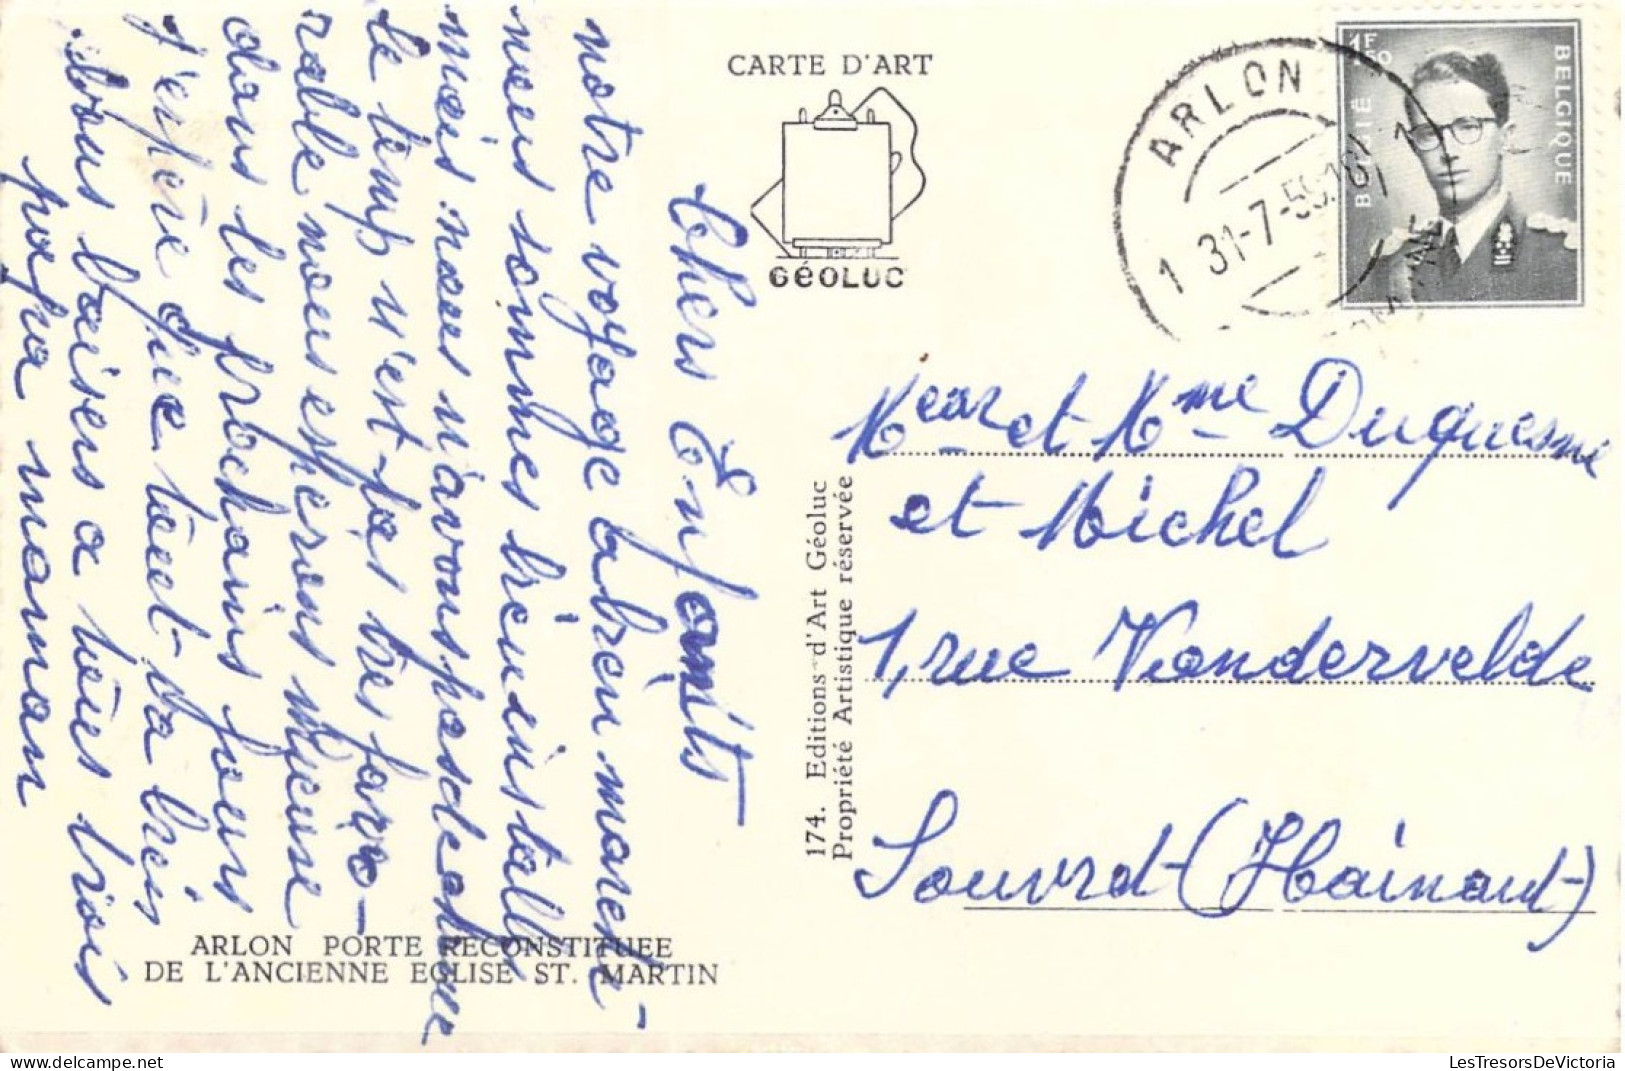 CARTE D'ART
GÉOLUC
ARLON
1 31-7-59
1F50
BELGIË
BELGIQUE
Chers Enfants
notre voyage a bien marché
nous sommes bien installés
mais nous n'avons pas de chance
le temps n'est pas très favo-
rable nous esperons mieuse
dans les prochains jours
J'espère que tout va bien
bons baisers a tous trois
papa maman
174. Editions d'Art Géoluc
Propriété Artistique réservée
Mr et Mme Duquesne
et Michel
1, rue Vandervelde
Souvret (Hainaut)
ARLON PORTE RECONSTITUEE
DE L'ANCIENNE EGLISE ST. MARTIN
LesTresorsDeVictoria